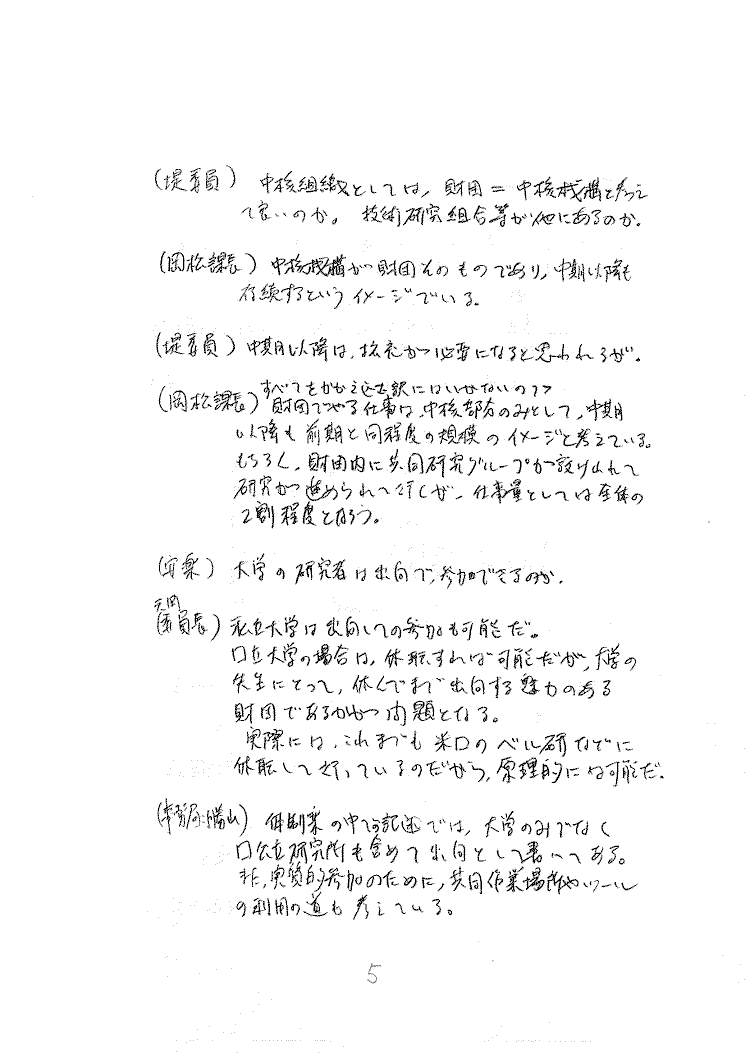 (堤委員) 中核組織としては、財団＝中核機構と考え
て良いのか。技術研究組合等が他にあるのか。
(岡松課長) 中核機構が財団そのものであり、中期以降も
存続するというイメージでいる。
(堤委員) 中期以降は、拡充が必要になると思われるが。
すべてをかかえ込む訳にはいかないので
(岡松課長) 財団でやる仕事は、中核部分のみとして、中期
以降も前期と同程度の規模のイメージと考えている。
もちろん、財団内に共同研究グループが設けられて
研究が進められて行くが、仕事量としては全体の
2割程度となろう。
(安楽) 大学の研究者は出向で参加できるのか。
元岡
(委員長) 私立大学は出向しての参加も可能だ。
口立大学の場合は、休職すれば可能だが、大学の
先生にとって、休んでまで出向する魅力のある
財団であるかが問題となる。
実際には、これまでも米口のベル研などに
休職して行っているのだから、原理的には可能だ。
(事務局:勝山) 体制案の中の記述では、大学のみでなく
口公立研究所も含めて出向として書いてある。
また、実質的参加のために、共同作業場所やツール
の利用の道も考えている。
5